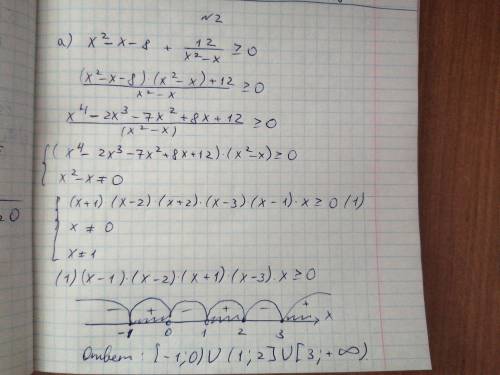 №2
а) x² - x - 8 + 12/(x² - x) ≥ 0
((x² - x - 8)(x² - x) + 12)/(x² - x) ≥ 0
(x⁴ - 2x³ - 7x² + 8x + 12)/(x² - x) ≥ 0
(x⁴ - 2x³ - 7x² + 8x + 12)·(x² - x) ≥ 0
x² - x ≠ 0
(x+1)·(x-2)·(x+2)·(x-3)·(x-1)·x ≥ 0 (1)
x ≠ 0
x ≠ 1
(1) (x-1)·(x-2)·(x+1)·(x-3)·x ≥ 0
- + - + - +
-1 0 1 2 3 x
Ответ: [-1; 0) ∪ (1; 2] ∪ [3; +∞).